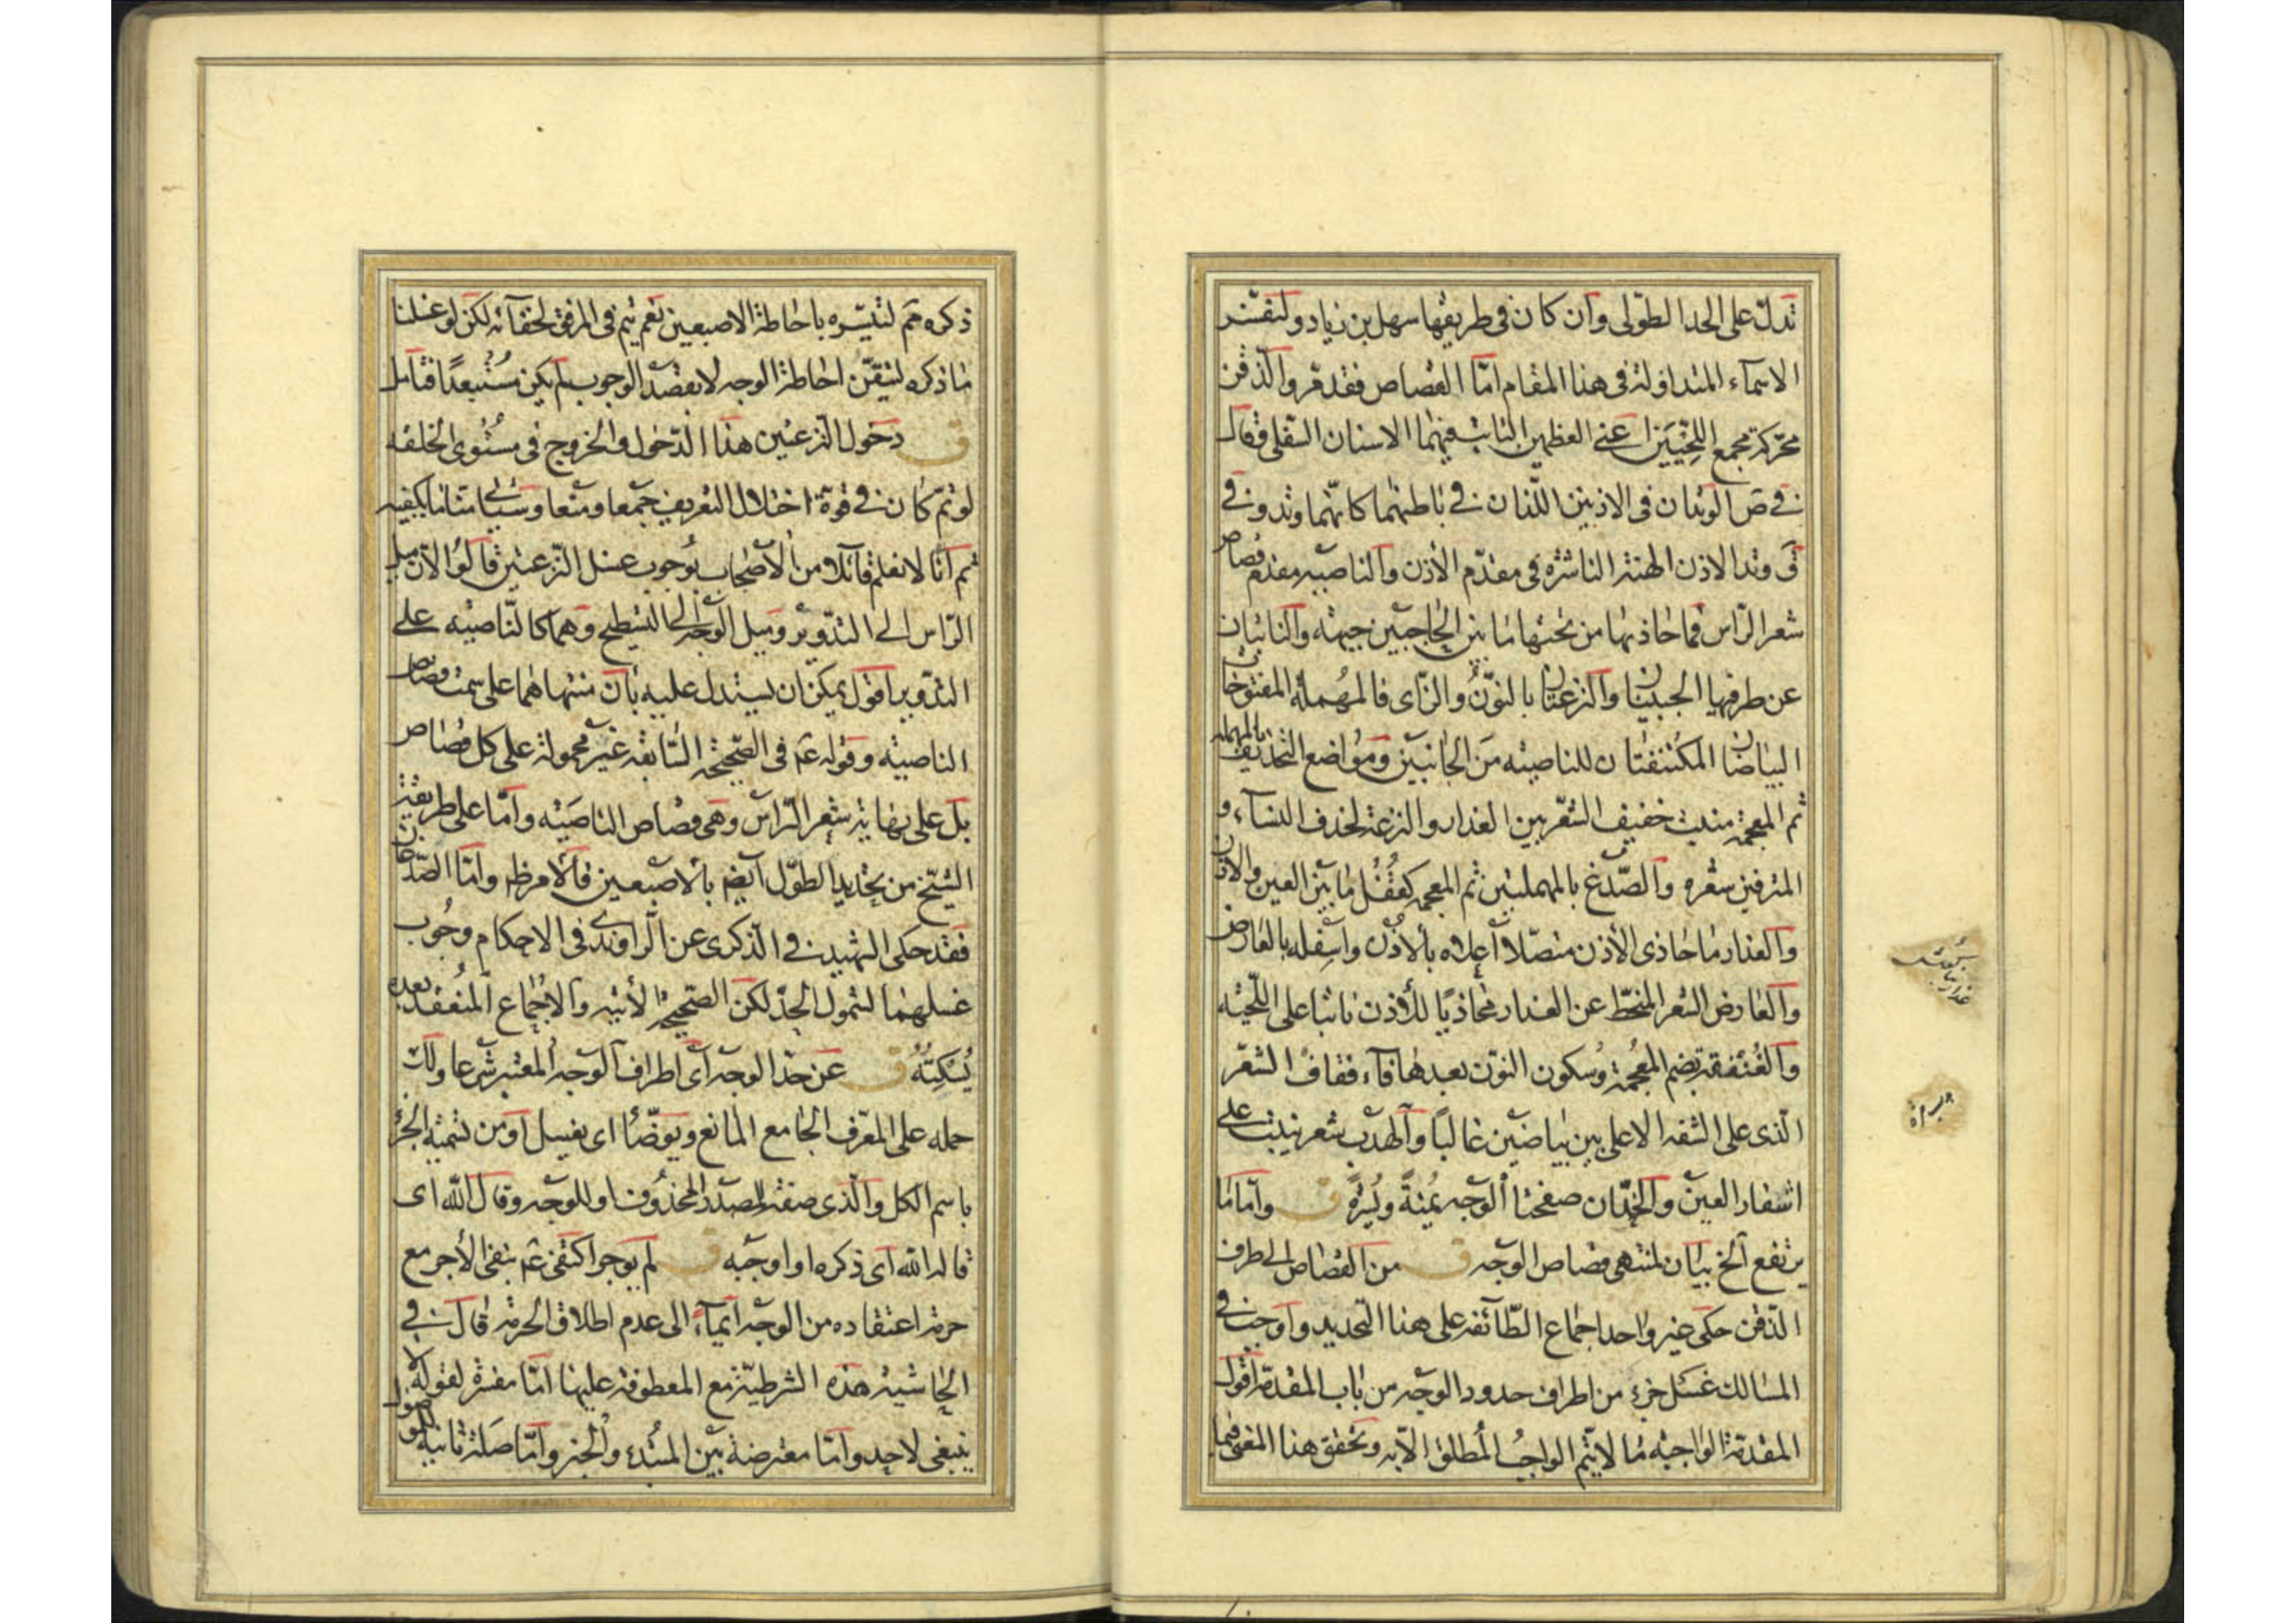 تدلّ على الحد الطّولى وان كان فى طريقها سهل بن زياد ولنفسّر
الاسماء المتداولة فى هذا المقام امّا القصاص فقد مرّ والذّقن
محرّكة مجمع اللّحيَين اعنى العظمين النابت فيهما الاسنان السّفلى وقال
فى ص الوتدان فى الاذنين اللّذان فى باطنهما كانّهما وتد وفى
ق وتد الاذن الهنة الناشزة فى مقدّم الأذن والناصيه مقدم قصاص
شعر الرّاس فما حاذيها من تحتها ما بين الحاجبين جبهة والنابتان
عن طرفيها الجبينان والنزعتان بالنّون والزّاى فالمهملة المفتوحات
البياضان المكتنفتان للناصيه من الجانبين ومواضع التحذيف بالمهملة
ثم المعجمة منبت خفيف الشّعر بين العذار والنزعة لحذف النساء و
المترفين شعره والصّدغ بالمهملتين ثم المعجمه كقُفْل ما بين العين والاذن
والعذار ما حاذى الأذن متصّلا اعلاه بالأذن واسفله بالعارض
والعارض الشعر المنحطّ عن العذار محاذيًا للأذن نابتا على اللّحيه
والعُنفقة بضم المعجمة وسكون النّون بعدها فآء فقاف الشعر
الّذى على الشفه الاعلى بين بياضين غالبًا والهدب شعر نيبت على
اشفار العين والخدّان صفحتا الوجه يُمنةً ويُسرةً ق وامّا ما
يرتفع الخ بيان لمنتهى قصاص الوجه ق من القصاص الى طرف
الذّقن حكى غير واحد اجماع الطّائفه على هذا التحديد واوجب فى
المسالك غسل جزء من اطراف حدود الوجه من باب المقدّمة اقول
المقدّمة الواجبه ما لا يتم الواجب المطلق الا به وتحقق هذا المعنى فيما
ذكره هم لتيسّره باحاطة الاصبعين نعم يتم فى المرفق لخفآئه لكن لو غسلنا
ما ذكره لتيقّن احاطة الوجه لا بقصد الوجوب لم يكن مُستبعدًا فتامل
ق دخول النزعتين هذا الدّخول والخروج فى مستوى الخلقه
لو تمّ كان فى قوّة اختلال التعريف جمعا ومنعا وسيأتى منّا ما يكفيه
ثم انّا لا نعلم قآئلا من الأصحاب بوجوب غسل النّزعتين قالوا لان ميل
الرّاس الى التدوير وميل الوجه الى التسطيح وهما كالنّاصيه على
التدوير اقول يمكن ان يستدل عليه بان منتهاهما على سمت قصاص
الناصيه وقوله ع فى الصّحيحة السّابقه غير محمولة على كل قصاص
بل على نهاية شعر الرّاس وهى قصاص الناصيه وامّا على طريقة
الشيخ من تحديد الطّول ايضم بالاصبعين فالامر ظم وامّا الصّدغان
فقد حكى الشهيد فى الذّكرى عن الرّاوندى فى الاحكام وجُوب
غسلهما لشمول الحدّ لكن الصّحيحة الأتيه والاجماع المنعقد بعده
يُسْكِتُهُ ق عن حدّ الوجه اى اطراف الوجه المعتبر شرعا ولك
حمله على المعرّف الجامع المانع ويوضّأ اى يغسل او من تسمية الجزء
باسم الكل والّذى صفة للمصدر المحذوف او للوجه وقال اللّه اى
قاله اللّه اى ذكره او اوجبه ق لم يوجر اكتفى ع بنفى الأجر مع
حرمة اعتقاده من الوجه ايمآءً الى عدم اطلاق الحرمة قال فى
الحاشية هذه الشرطيّة مع المعطوفة عليها امّا مفسّرة لقوله لا
ينبغى لاحد وامّا معترضة بين المبتدء والخبر وامّا صلة ثانيه للموصول